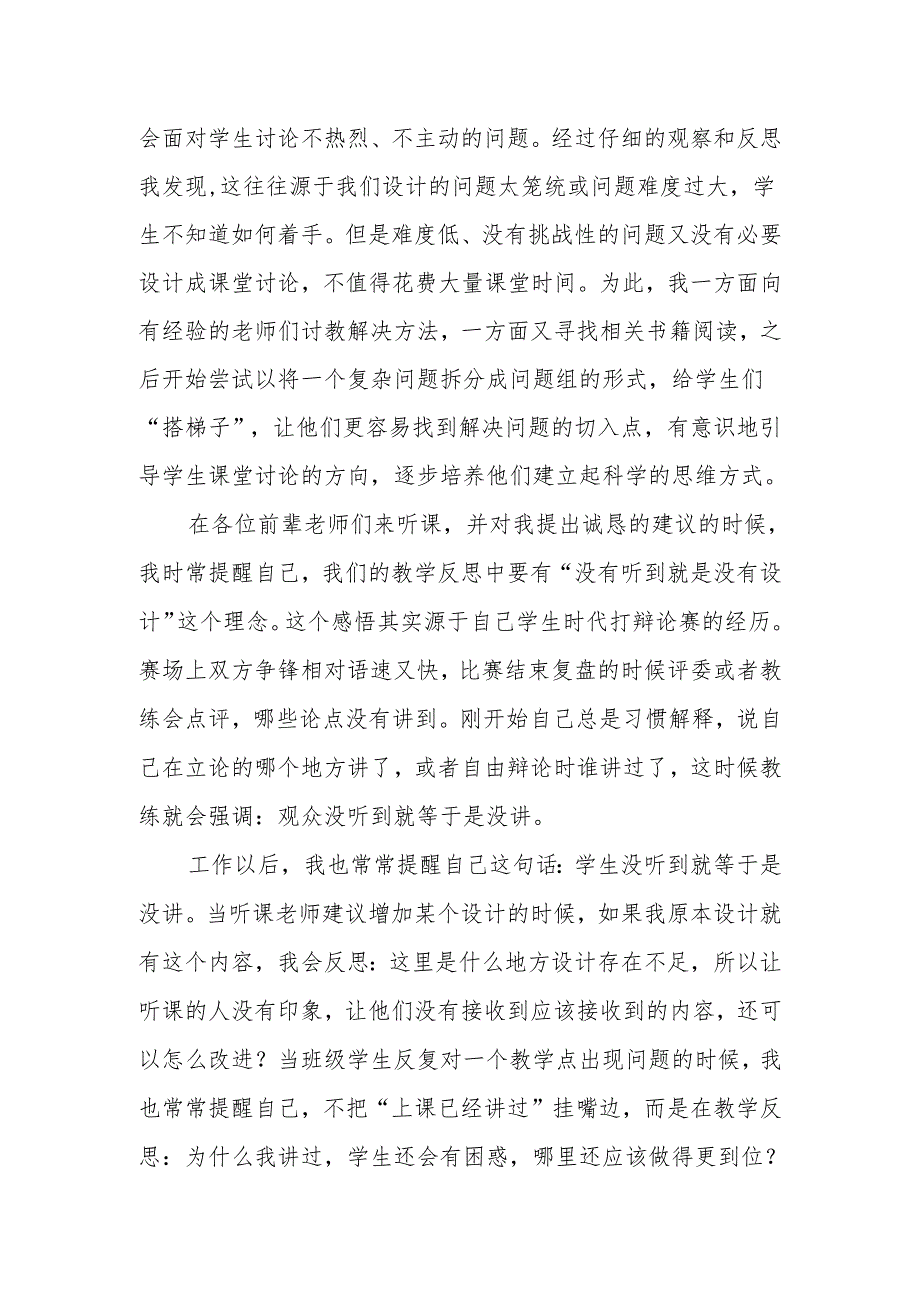 会面对学生讨论不热烈、不主动的问题。经过仔细的观察和反思
我发现,这往往源于我们设计的问题太笼统或问题难度过大，学
生不知道如何着手。但是难度低、没有挑战性的问题又没有必要
设计成课堂讨论，不值得花费大量课堂时间。为此，我一方面向
有经验的老师们讨教解决方法，一方面又寻找相关书籍阅读，之
后开始尝试以将一个复杂问题拆分成问题组的形式，给学生们
“搭梯子”，让他们更容易找到解决问题的切入点，有意识地引
导学生课堂讨论的方向，逐步培养他们建立起科学的思维方式。
在各位前辈老师们来听课，并对我提出诚恳的建议的时候，
我时常提醒自己，我们的教学反思中要有“没有听到就是没有设
计”这个理念。这个感悟其实源于自己学生时代打辩论赛的经历。
赛场上双方争锋相对语速又快，比赛结束复盘的时候评委或者教
练会点评，哪些论点没有讲到。刚开始自己总是习惯解释，说自
己在立论的哪个地方讲了，或者自由辩论时谁讲过了，这时候教
练就会强调：观众没听到就等于是没讲。
工作以后，我也常常提醒自己这句话：学生没听到就等于是
没讲。当听课老师建议增加某个设计的时候，如果我原本设计就
有这个内容，我会反思：这里是什么地方设计存在不足，所以让
听课的人没有印象，让他们没有接收到应该接收到的内容，还可
以怎么改进？当班级学生反复对一个教学点出现问题的时候，我
也常常提醒自己，不把“上课已经讲过”挂嘴边，而是在教学反
思：为什么我讲过，学生还会有困惑，哪里还应该做得更到位？